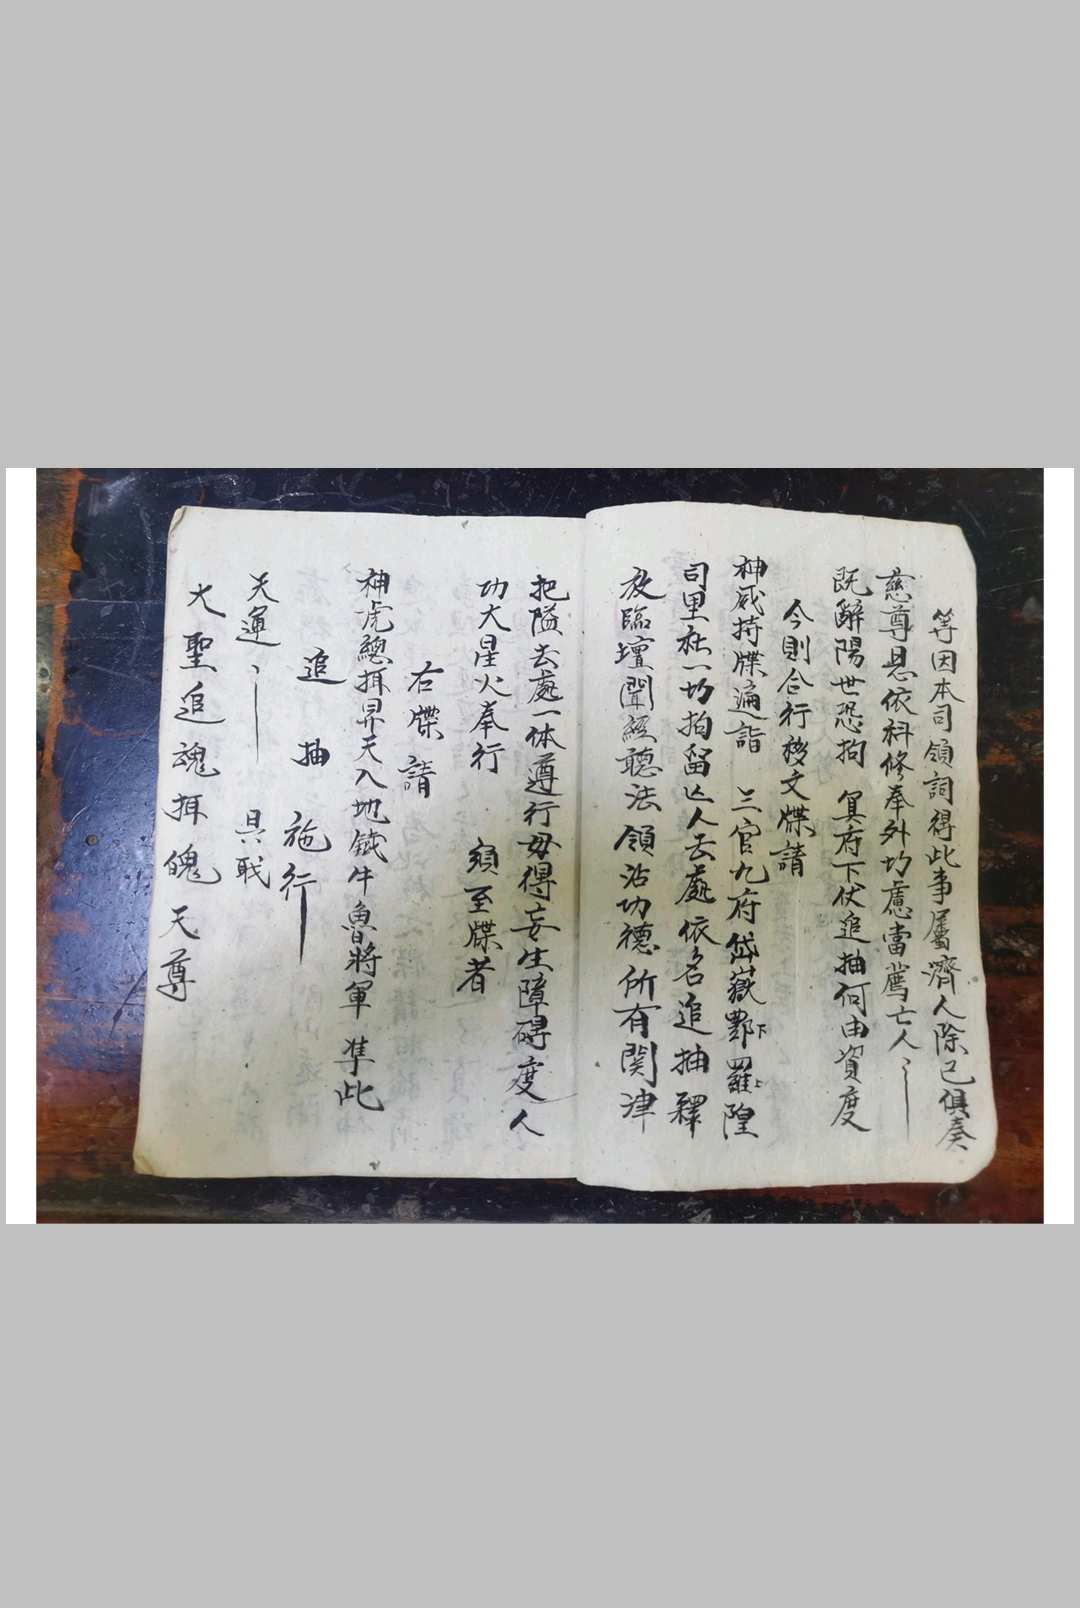 等因本司領詞得此事屬濟人除已俱奏
慈尊恩依科修奉外切慮當薦亡人
既辭陽世恐拘 冥府下伏追抽何由資度
今則合行移文牒請
神威持牒遍詣 三官九府岱嶽酆下羅上隍
司里社一切拍留亡人去處依名追抽釋
放臨壇聞經聽法領沾功德所有関津
把隘去處一体遵行毋得妄生障碍度人
功大星火奉行 須至牒者
右牒請
神虎總挕昇天入地鐵牛魯將軍 準此
追抽施行
天運 具職
大聖追魂挕魄天尊